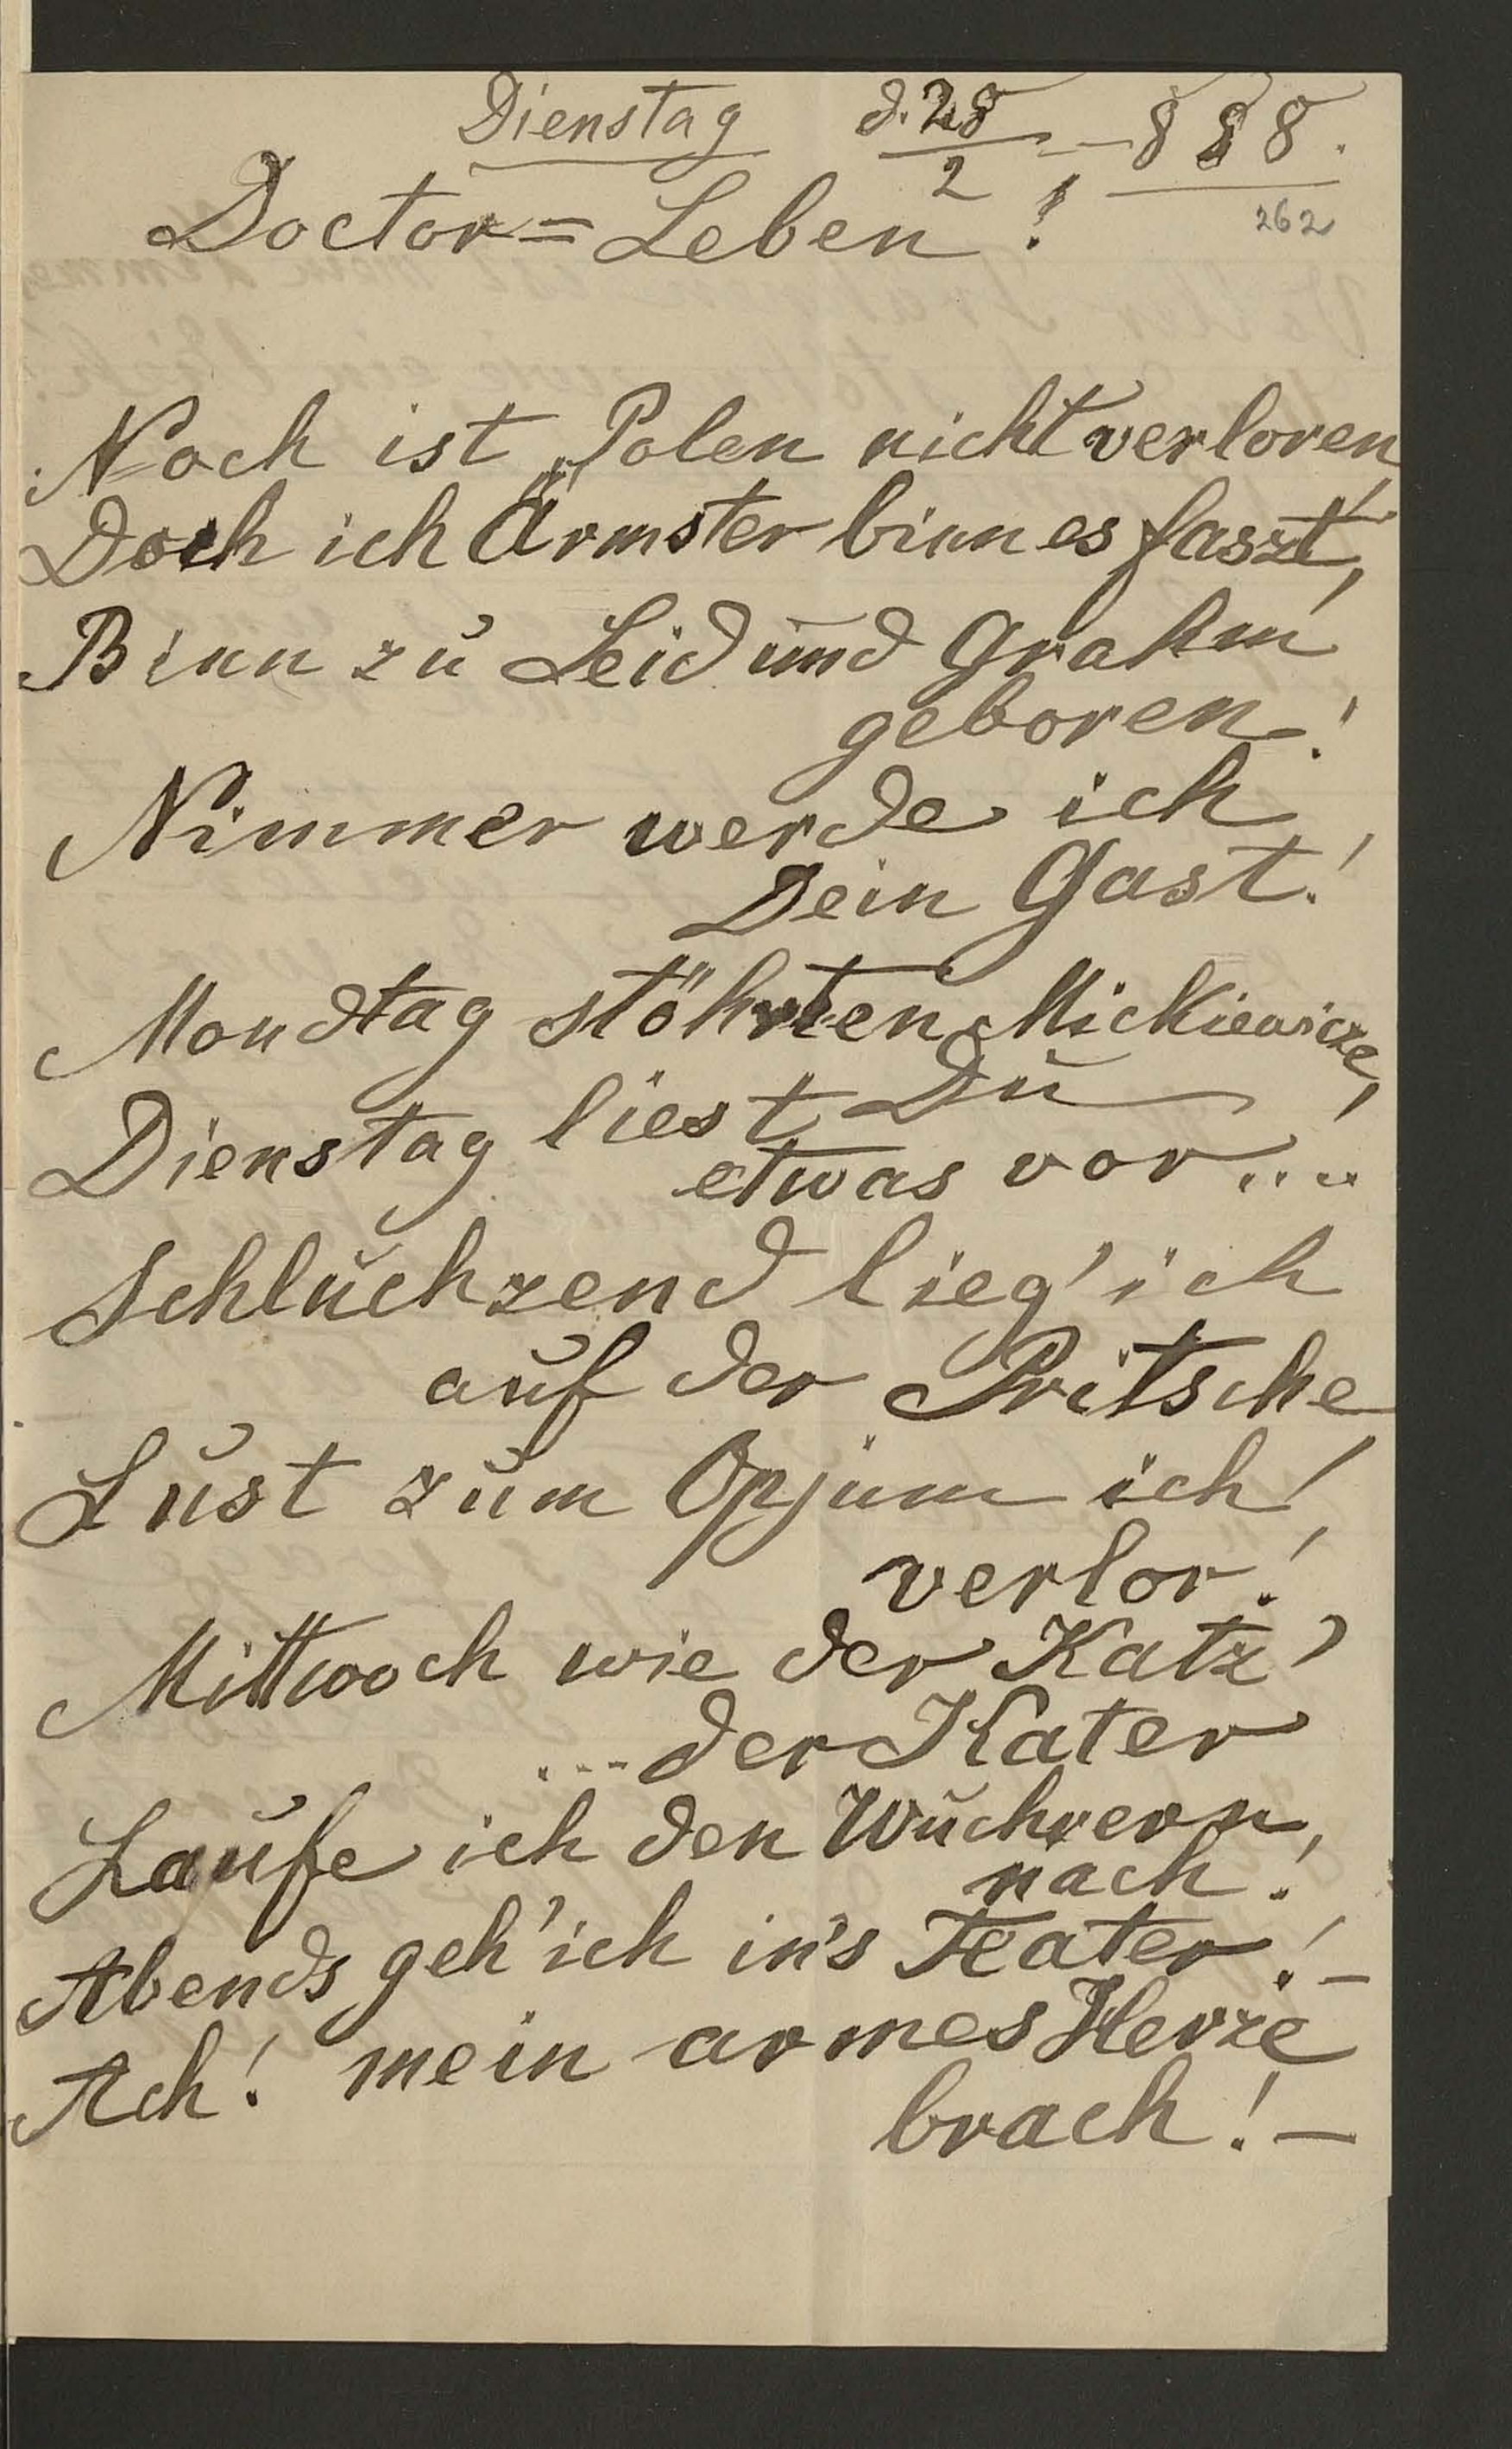 Dienstag d. 28/2 – 888.
262
Doctor = Leben!
Noch ist „Polen nicht verloren,
Doch ich Ärmster binn es faszt,
Binn zu Leid und Grahm
geboren!
Nimmer werde ich
Dein Gast!
Mondtag stöhrten Mickiewicze,
Dienstag liest Du
etwas vor....
Schluchzend lieg' ich
auf der Pritsche
Lust zum Opjum ich
verlor!
Mittwoch wie der Katz'
... der Kater
Laufe ich den Wuchrern
nach!
Abends geh' ich in's Teater! –
Ach! mein armes Herze
brach! –